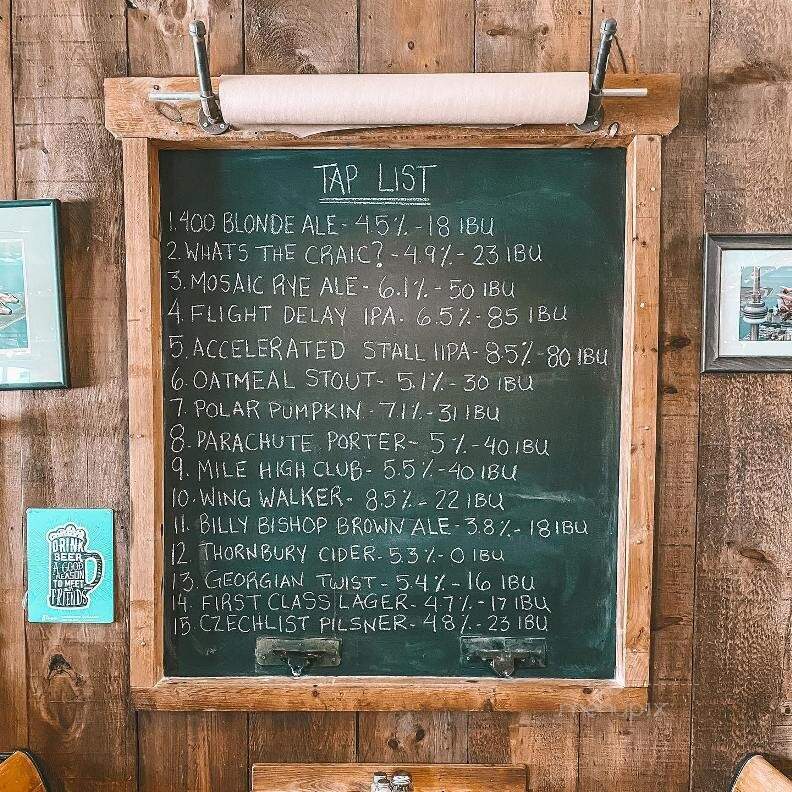 TAP LIST
1. 400 BLONDE ALE - 4.5% - 18 IBU
2. WHATS THE CRAIC? - 4.9% - 23 IBU
3. MOSAIC RYE ALE - 6.1% - 50 IBU
4. FLIGHT DELAY IPA - 6.5% - 85 IBU
5. ACCELERATED STALL IIPA - 8.5% - 80 IBU
6. OATMEAL STOUT - 5.1% - 30 IBU
7. POLAR PUMPKIN - 7.1% - 31 IBU
8. PARACHUTE PORTER - 5% - 40 IBU
9. MILE HIGH CLUB - 5.5% - 40 IBU
10. WING WALKER - 8.5% - 22 IBU
11. BILLY BISHOP BROWN ALE - 3.8% - 18 IBU
12 THORNBURY CIDER - 5.3% - 0 IBU
13. GEORGIAN TWIST - 5.4% - 16 IBU
14. FIRST CLASS LAGER - 4.7% - 17 IBU
15 CZECHLIST PILSNER - 4.8% - 23 IBU
DRINK
BEER
A GOOD
REASON
TO MEET
FRIENDS